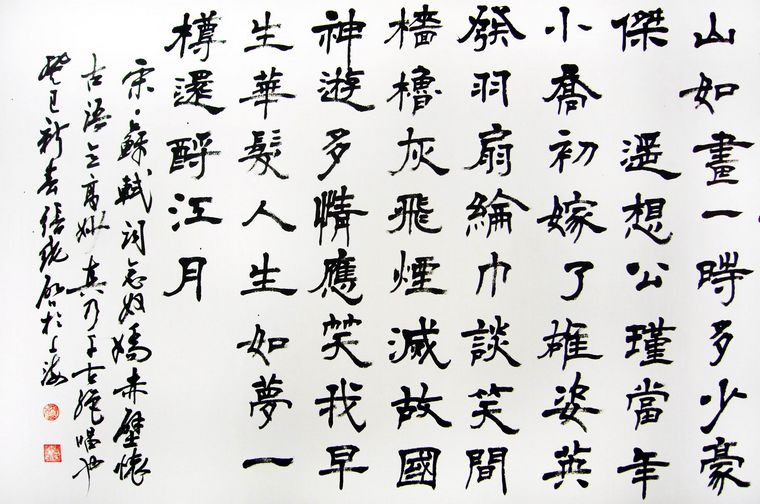 山如畫一時多少豪
傑 遥想公瑾當年
小喬初嫁了雄姿英
發羽扇綸巾談笑間
檣櫓灰飛煙滅故國
神遊多情應笑我早
生華髮人生如夢一
樽還酹江月
宋蘇軾詞念奴嬌赤壁懷
古語意高妙真乃千古絕唱也
癸巳新春於上海